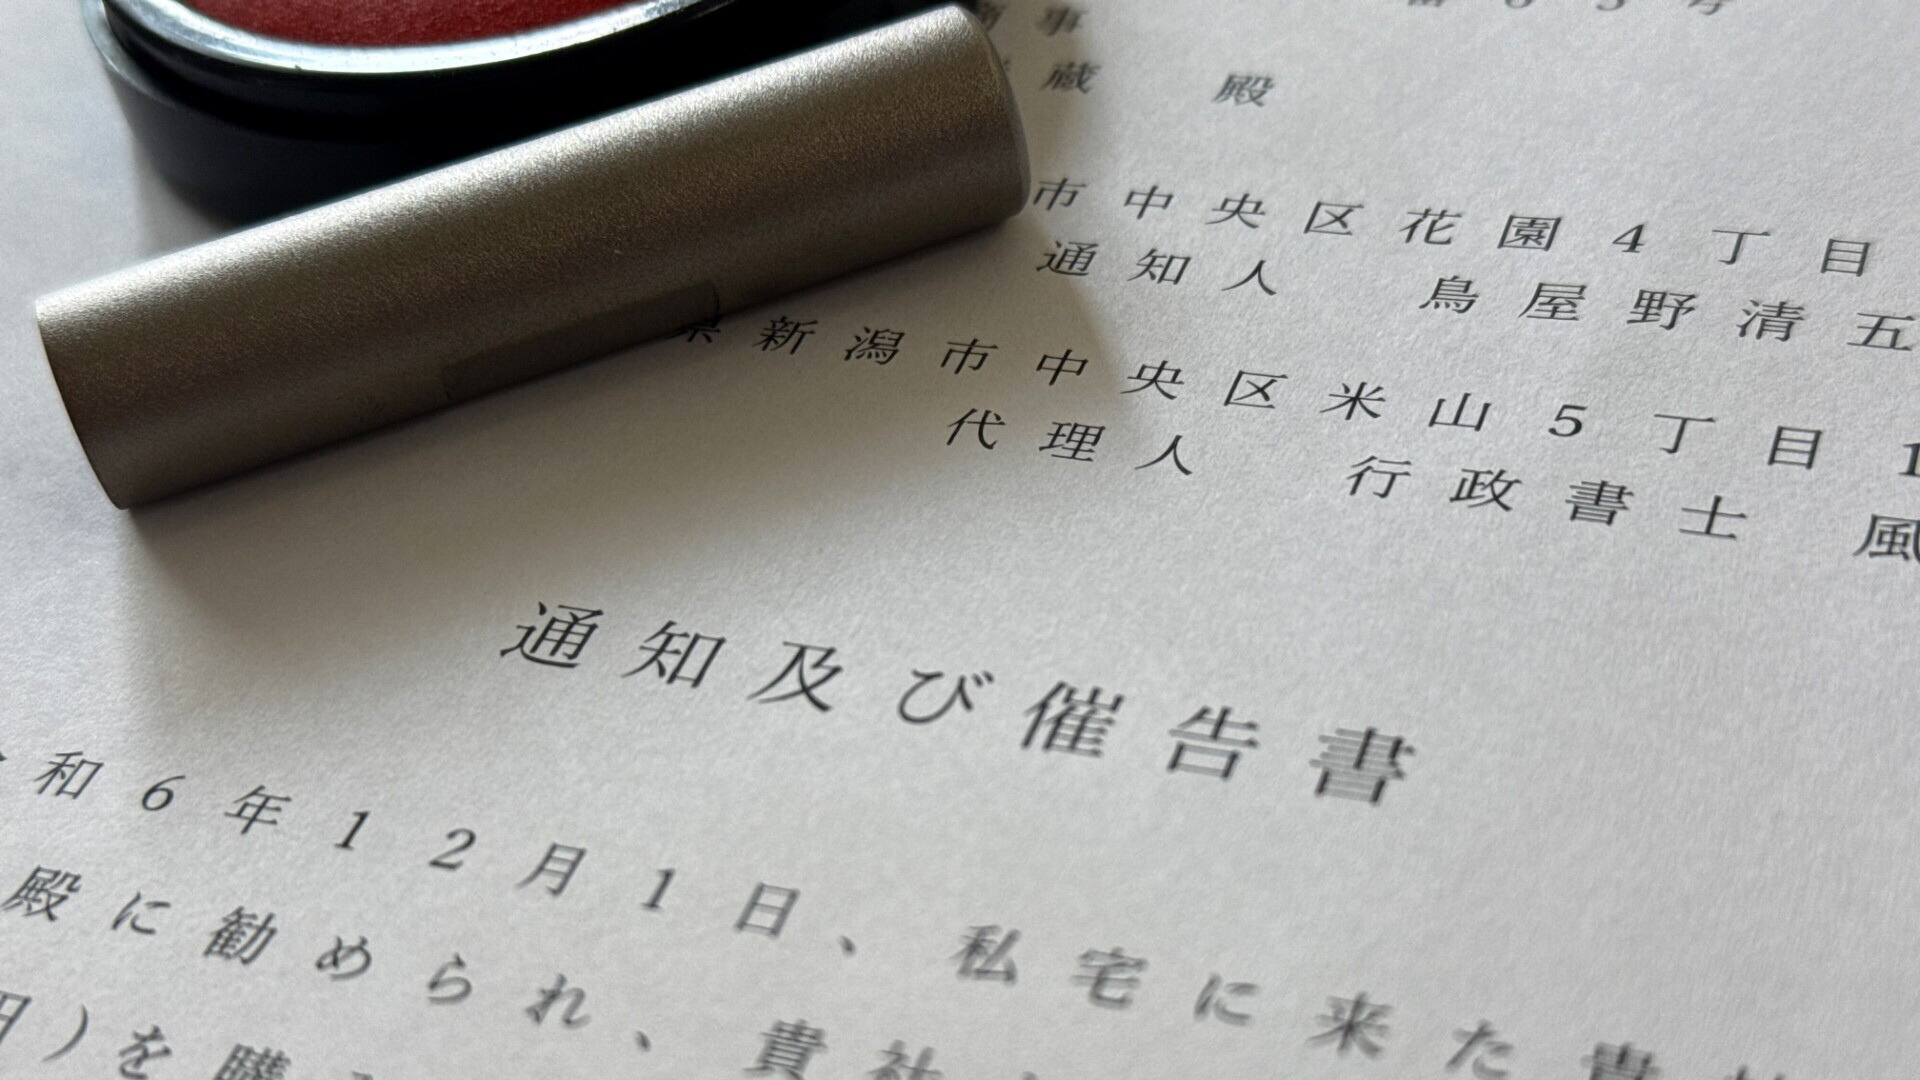 事
蔵 殿
市中央区花園4丁目
通知人 鳥屋野清五
県新潟市中央区米山5丁目1
代理人 行政書士 風
通知及び催告書
和6年12月1日、私宅に来た貴
殿に勧められ、貴社
)を購